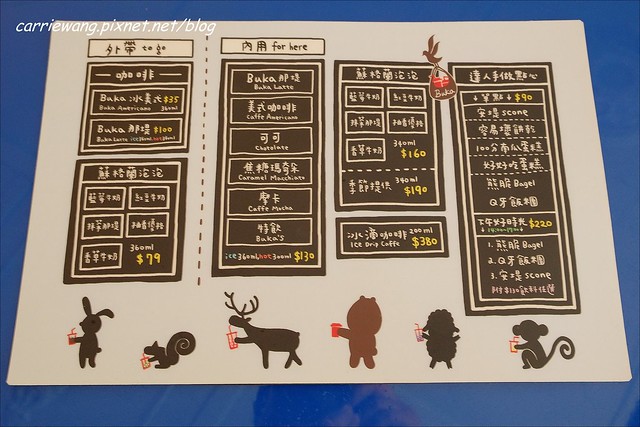 carriewang.pixnet.net/blog
外帶 to go
咖啡
Buka 冰美式 $35
Buka Americano 360ml
Buka 那堤 $100
Buka Latte ice360ml hot300ml
蘇格蘭泡泡
藍莓牛奶 紅豆牛奶
抹茶那堤 柚香優格
香草牛奶 360ml
$79
內用 for here
Buka 那堤
Buka Latte
美式咖啡
Caffe Americano
可可
Chocolate
焦糖瑪奇朵
Caramel Macchiato
摩卡
Caffe Mocha
特飲
Buka's
ice360ml hot300ml $130
蘇格蘭泡泡
藍莓牛奶 紅豆牛奶
抹茶那堤 柚香優格
香草牛奶 340ml
$160
季節提供 340ml
$190
冰滴咖啡 200ml
Ice Drip Caffe $380
Buka
達人手做點心
↓單點↓ $90
安堤 scone
容易壞餅乾
100分布丘蛋糕
好好吃蛋糕
熊熊 Bagel
Q牙飯糰
下午好時光 $220
1. 熊熊 Bagel
2. Q牙飯糰
3. 安堤 scone
附$130飲料任選